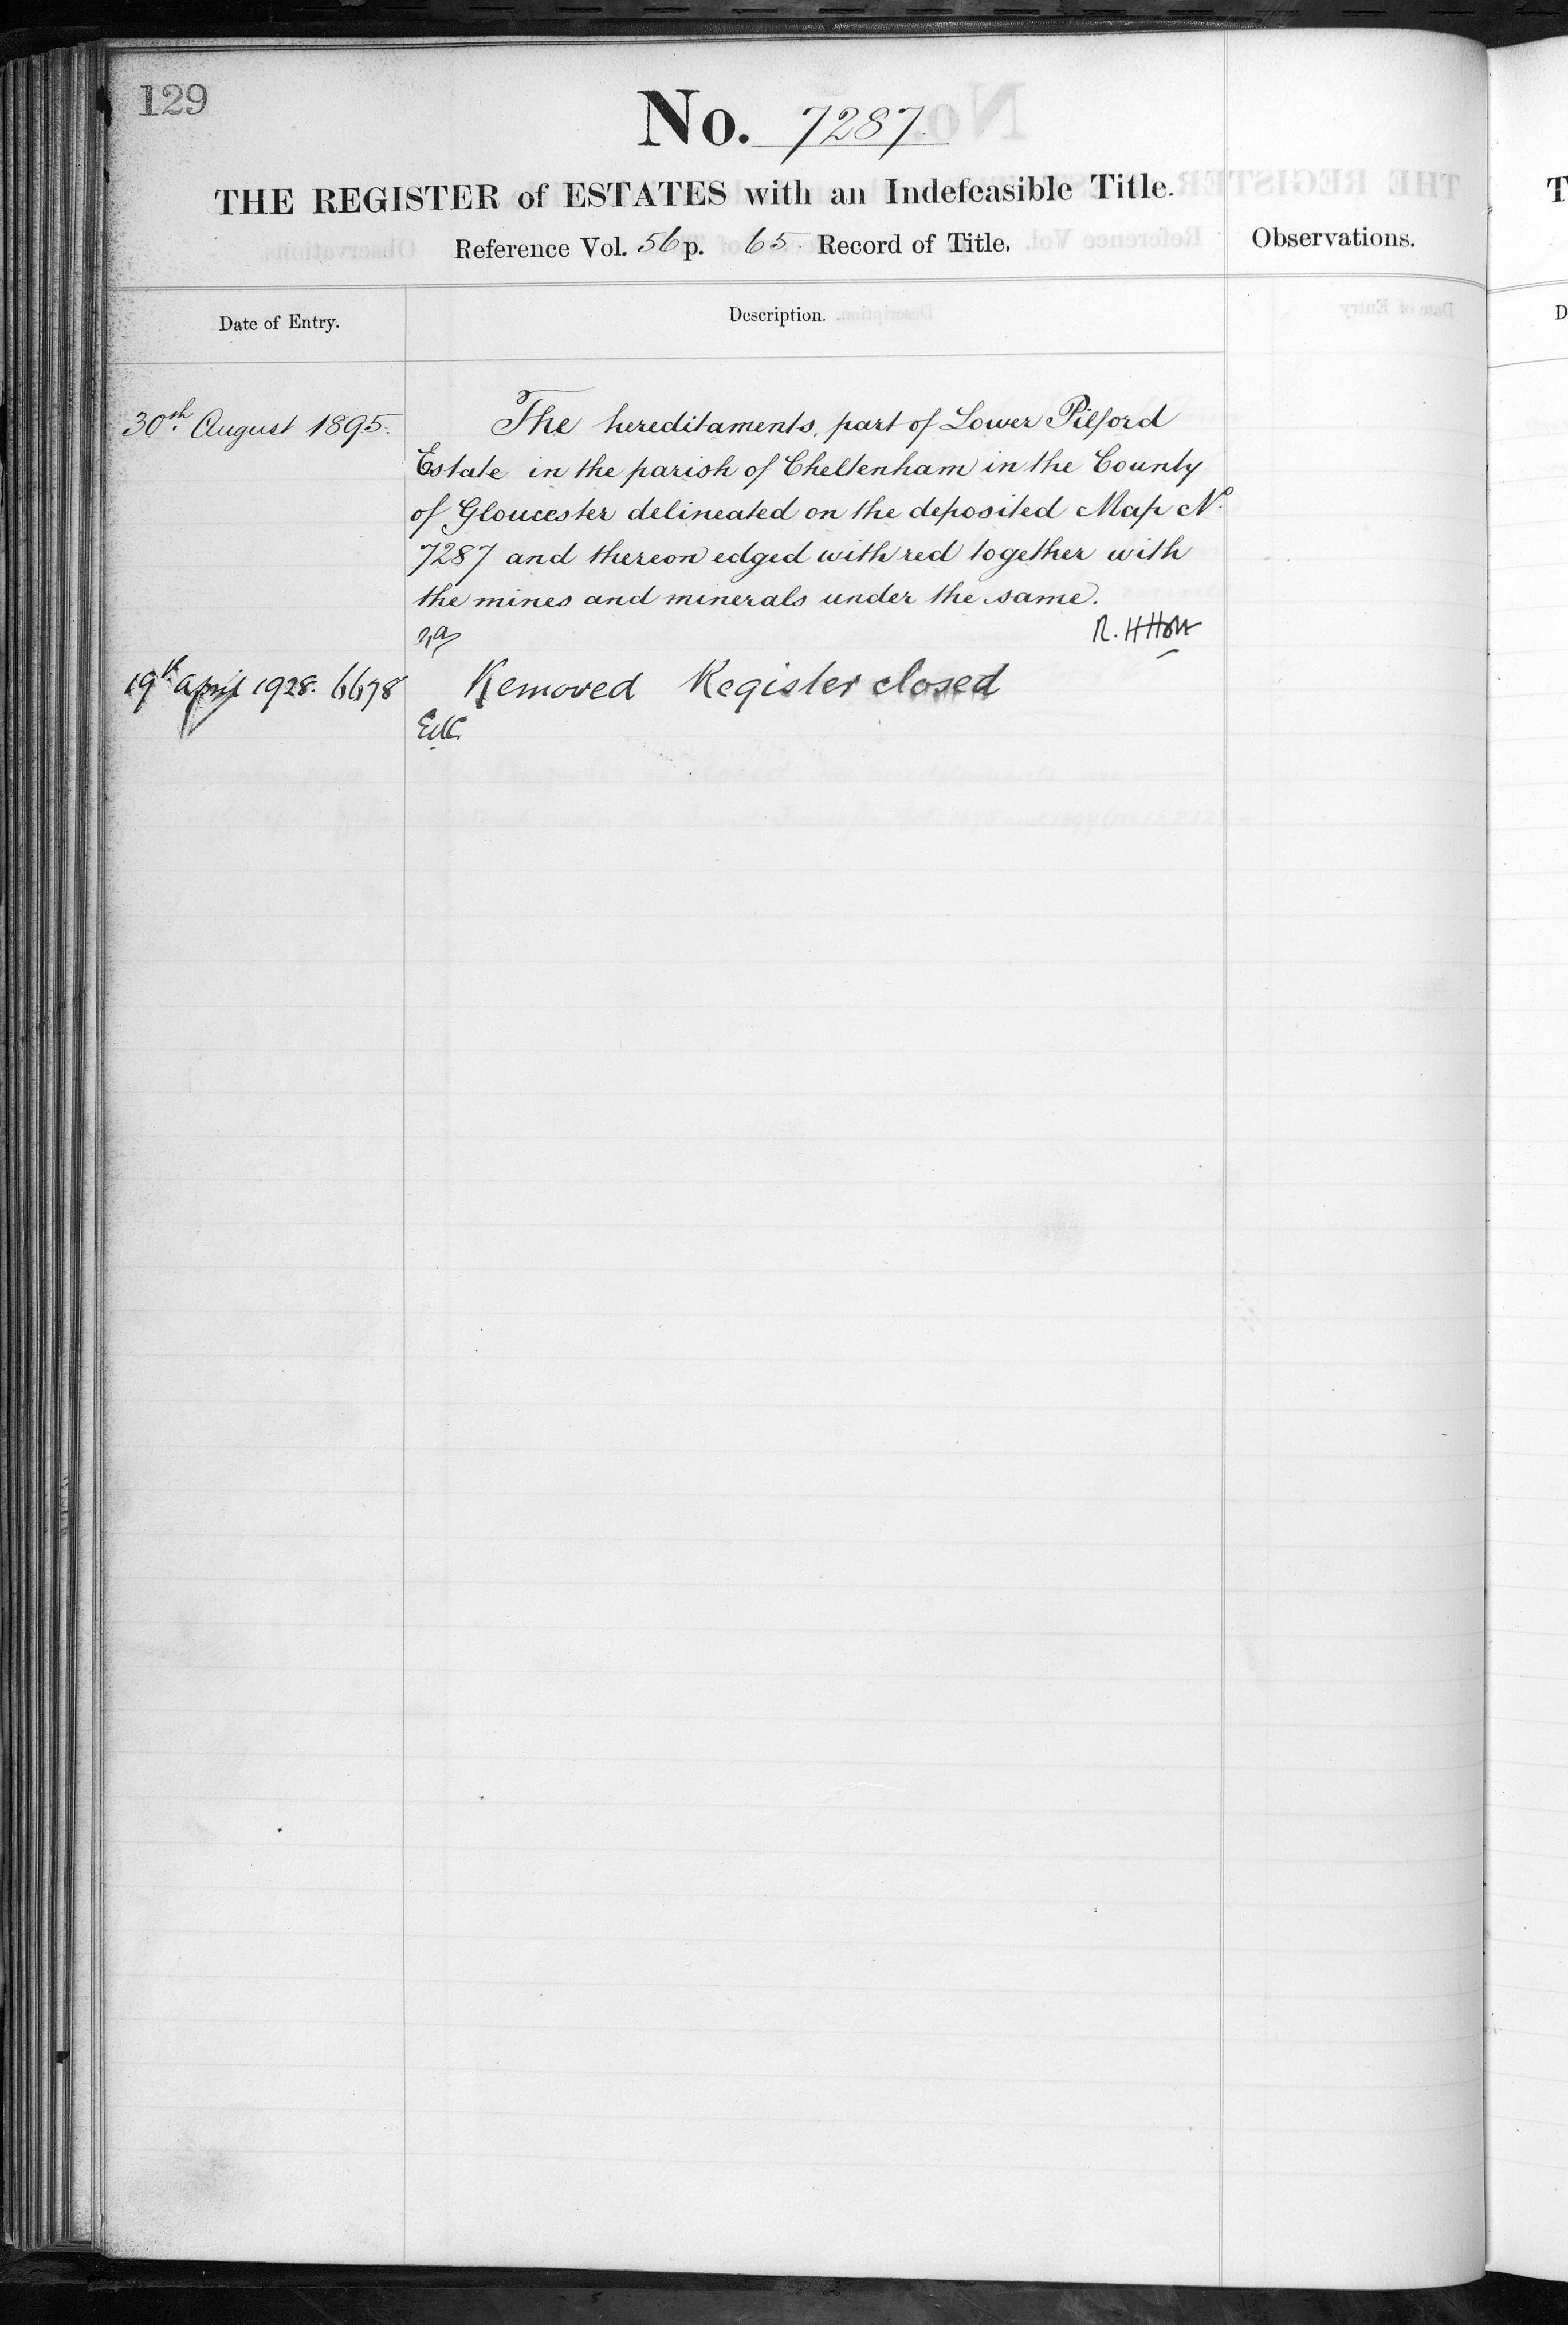 129
No. 7287
THE REGISTER of ESTATES with an Indefeasible Title.
Reference Vol. 56 p. 65 Record of Title.
Observations.
Date of Entry.
Description.
30th August 1895.
The hereditaments, part of Lower Pilford
Estate in the parish of Cheltenham in the County
of Gloucester delineated on the deposited Map No.
7287 and thereon edged with red together with
the mines and minerals under the same.
R. H Holt
19th April 1928. 6678
Removed Register closed